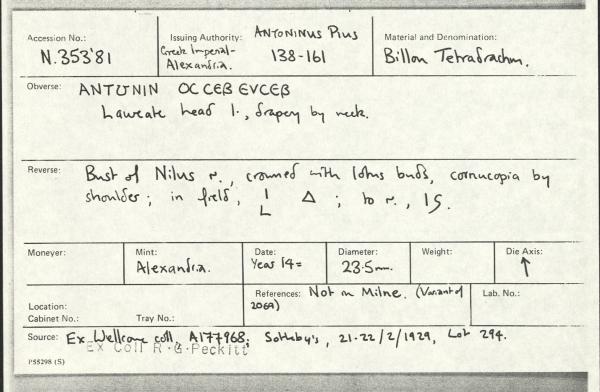 Accession No.: N.353'81
Issuing Authority: ANTONINUS PIUS
Greek Imperial- Alexandria. 138-161
Material and Denomination: Billon Tetradrachm.
Obverse: ANTWNIN OC CEB EVCEB
Laureate head l., drapery by neck.
Reverse: Bust of Nilus r., crowned with lotus buds, cornucopia by
shoulder; in field, I L Δ ; to r., 15.
Moneyer:
Mint: Alexandria.
Date: Year 14=
Diameter: 23.5mm.
Weight:
Die Axis: ↑
Location:
Cabinet No.: Tray No.:
References: Not in Milne. (Variant of
2069)
Lab. No.:
Source: Ex Wellcome coll, A177968; Sotheby's, 21-22/2/1929, Lot 294.
Ex Coll R.G.Peckitt
P55298 (S)